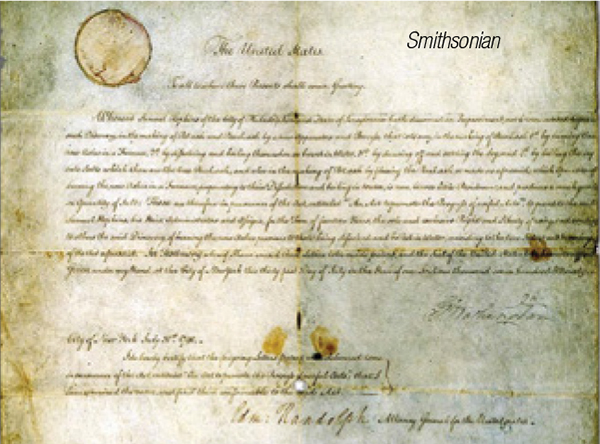 Smithsonian
The United States
To all to whom these Presents shall come Greeting.
Whereas Samuel Hopkins of the City of Philadelphia and State of hath discovered an Improvement, not
such Discovery, in the making of Pot ash and Pearl ash by a new Apparatus and Process; that is to say, in the making of Pearl ash 1st. by burning the
raw Ashes in a Furnace, 2d. by dissolving and boiling them when so burnt in Water, 3d. by drawing off and settling the Ley, and 4th. by boiling the Ley
into Salts which then are the true Pearl ash; and also in the making of Pot ash by fluxing the Pearl ash so made as aforesaid; which
burning the raw Ashes in a Furnace, preparatory to their Dissolution and boiling in Water, is new, leaves little Residuum; and produces a much
Quantity of Salt: These are therefore in pursuance of the Act, entitled "An Act to promote the Progress of useful Arts", to
Samuel Hopkins, his Heirs, Administrators and Assigns, for the Term of fourteen Years, the sole and exclusive Right and Liberty of using and
to others the said Discovery, of burning the raw Ashes previous to their being dissolved and boiled in Water, according to
of the Act aforesaid. In Testimony whereof I have caused these Letters to be made patent, and the Seal of the United States to be
Given under my Hand at the City of New York this thirty first Day of July in the Year of our Lord one thousand seven hundred &
G Washington
City of New York July 31st. 1790.
I do hereby certify that the foregoing Letters patent were delivered to me
in pursuance of the Act, entitled "An Act to promote the Progress of useful Arts"; that I
have examined the same, and find them conformable to the said Act.
Edm: Randolph Attorney General for the United States.